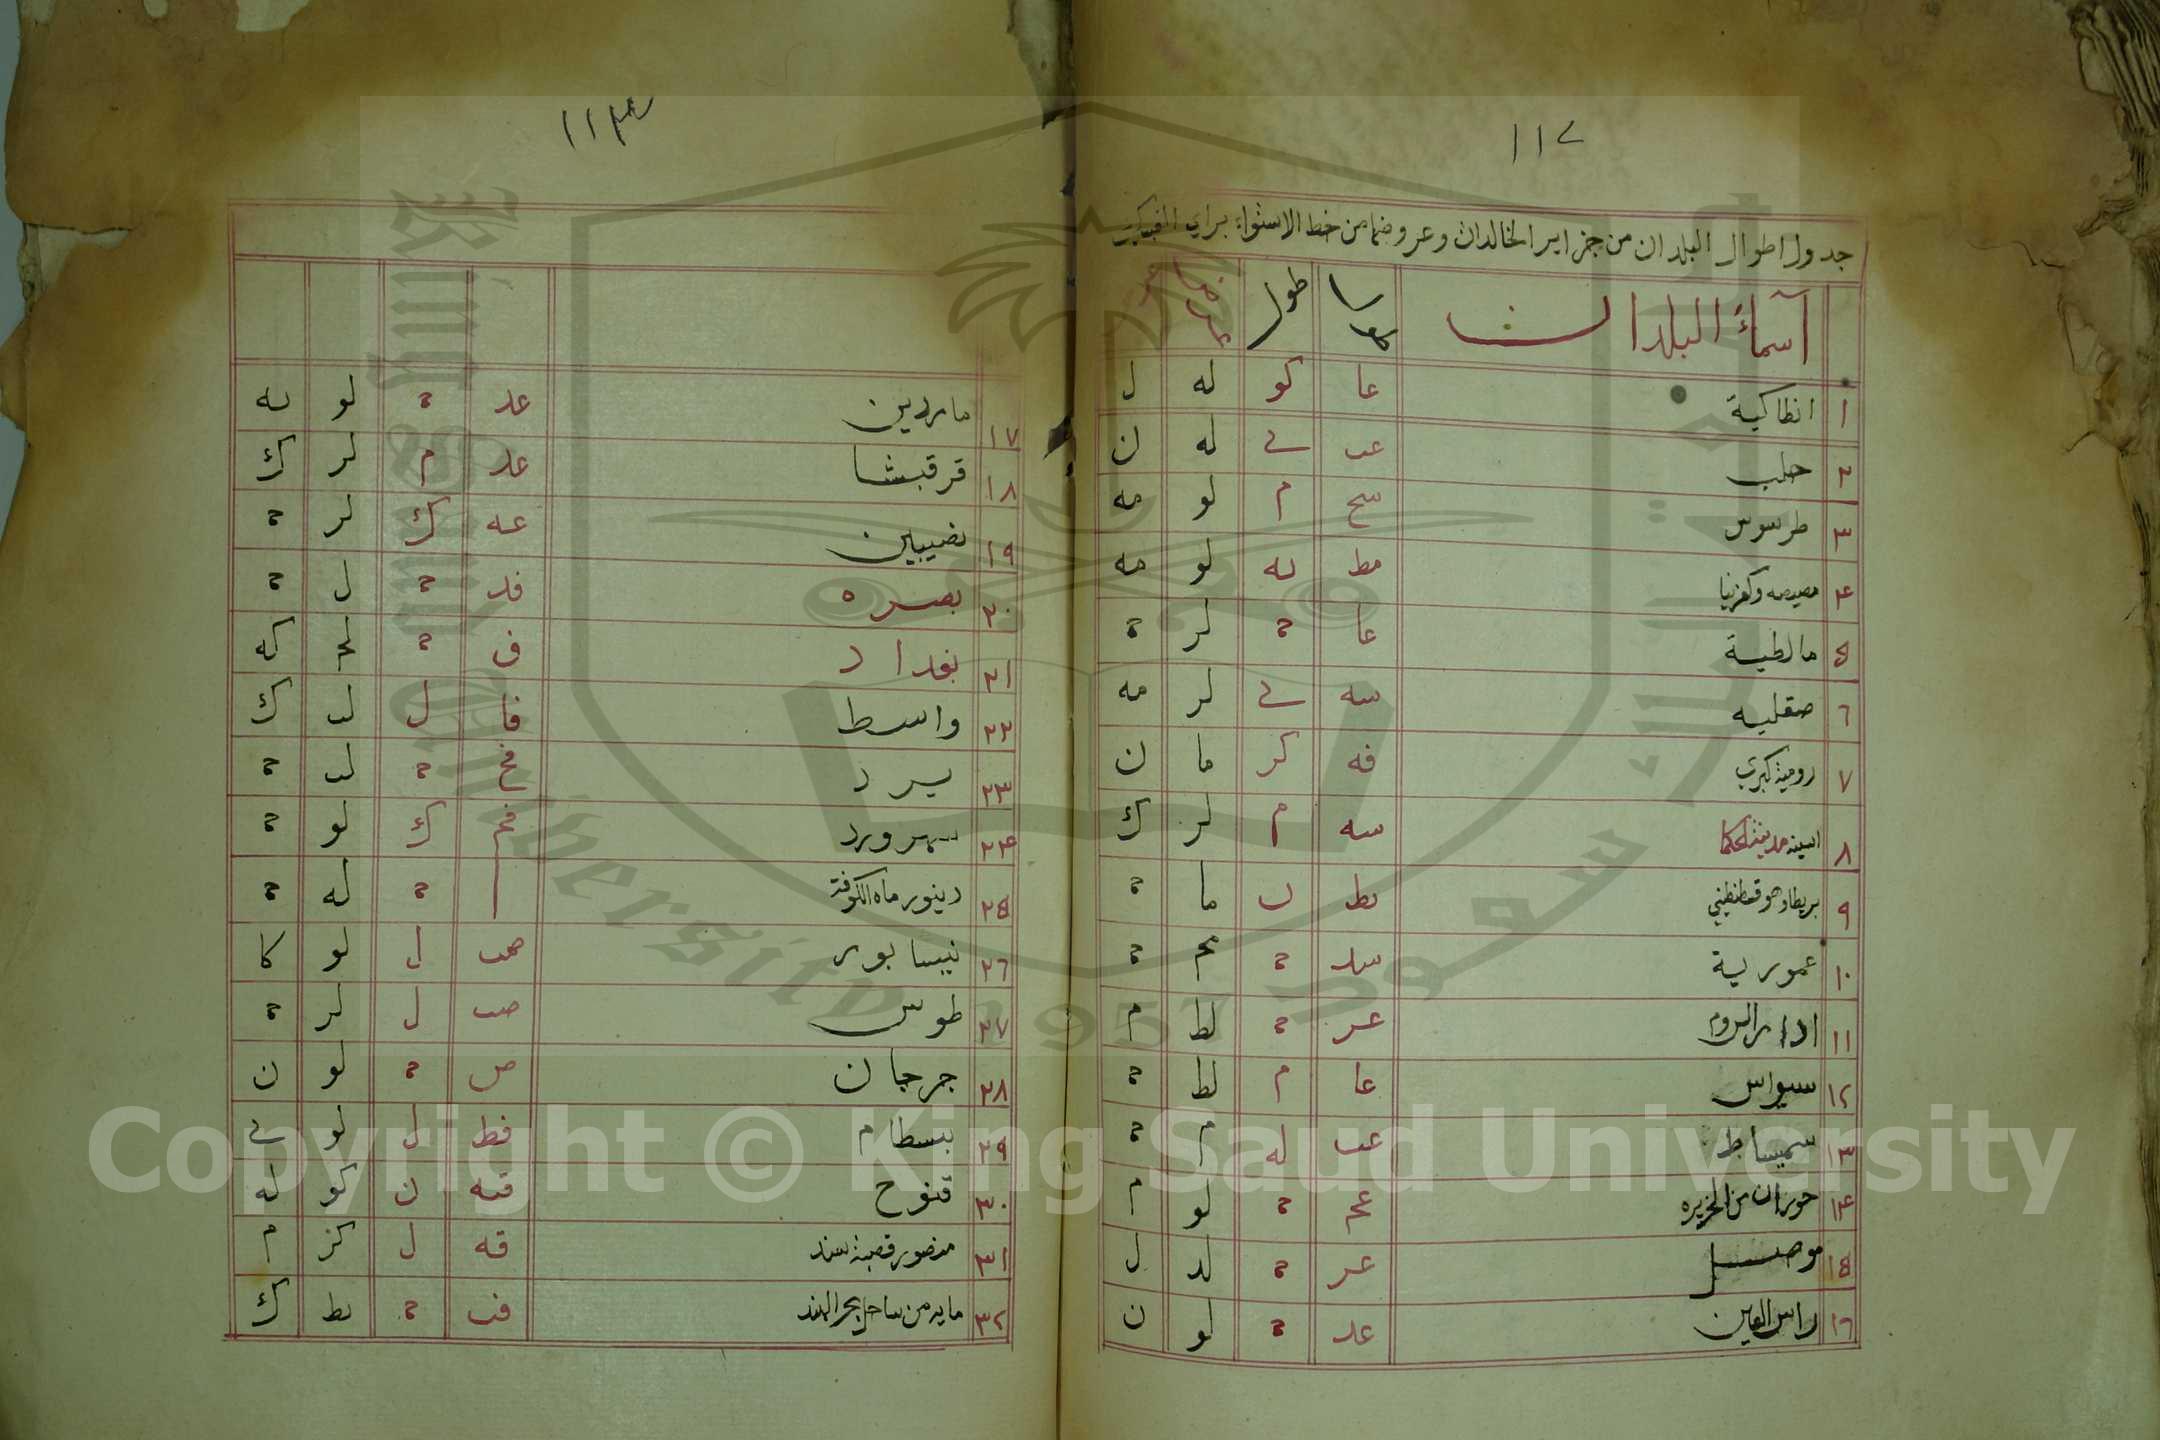 ١١٢
جدول اطوال البلدان من جزاير الخالدات وعروضها من خط الاستواء براي
آسمآء البلدان
طول
١ انطاكية عا كو له ل
٢ حلب عب ي له ن
٣ طرسوس سح م لو مه
٤ مصيصه و مط نه لو مه
٥ مالطية عا ة لر ة
٦ صقليه سه ي لر مه
٧ رومية كبرى فه كر ما ن
٨ اسينه مدينة الحكما سه م لر ك
٩ وهو قسطنطيني نط ن ما ة
١٠ عمورية سد ة مح ة
١١ الروم عر ة لط م
١٢ سيواس عا م لط ة
١٣ سميساط عب له م ة
١٤ حوران من الجزيره عح ة لو م
١٥ موصل عر ة لد ل
١٦ راس العين عد ة لو ن
١١٣
١٧ ماردين عد ة لو نه
١٨ قرقبشا عد م لر ك
١٩ نضيبين عه ك لر ة
٢٠ بصره فد ة ل ة
٢١ بغداد ف ة لح كه
٢٢ واسط فا ل لب ك
٢٣ يرد فح ة لب ة
٢٤ سهرورد فح ك لو ة
٢٥ دينور ماه الكوفة ة له ة
٢٦ نيسابور صب ل لو كا
٢٧ طوس صب ل لر ة
٢٨ جرجان ص ة لو ن
٢٩ بسطام فط ل لو ي
٣٠ قنوح قيه ن كو له
٣١ منصور قصبة سند قه ل كز م
٣٢ من ساحل بحر الهند قب ة يط ك
Copyright © King Saud University
King Saud University
1957